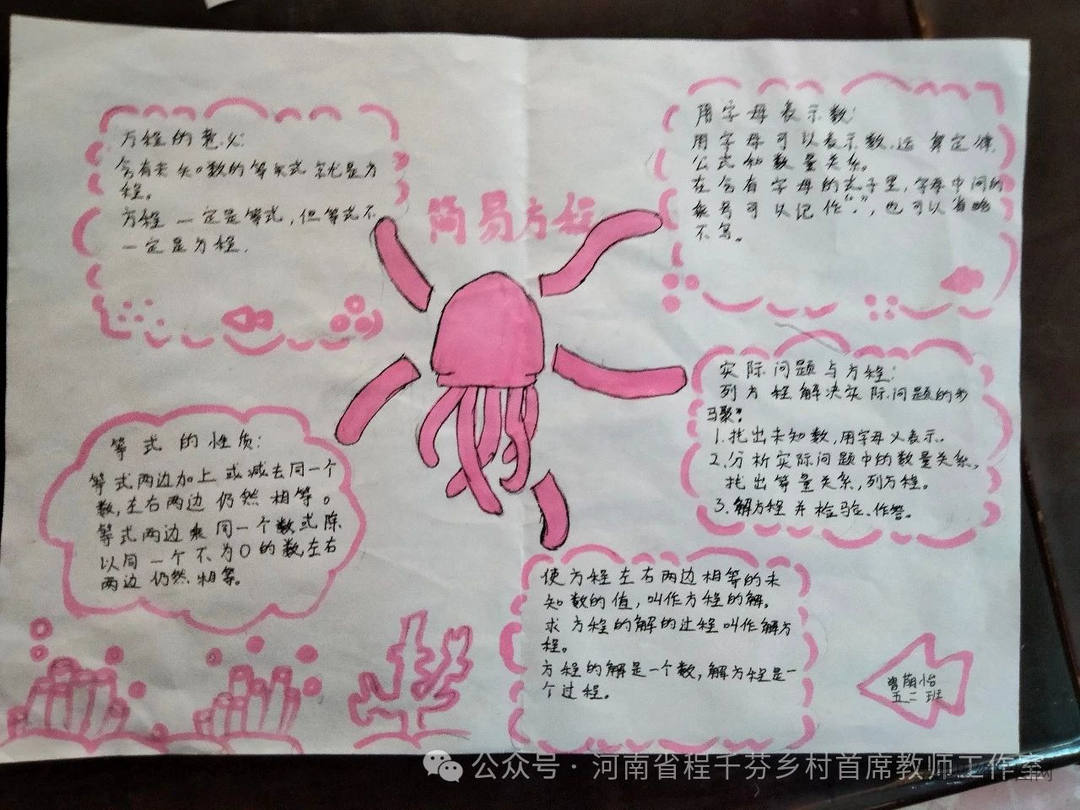 简易方程
方程的意义:
含有未知数的等式就是方
程。
方程一定是等式,但等式不
一定是方程.
用字母表示数:
用字母可以表示数、运算定律,
公式和数量关系。
在含有字母的式子里,字母中间的
乘号可以记作“·”,也可以省略
不写。
等式的性质:
等式两边加上或减去同一个
数,左右两边仍然相等。
等式两边乘同一个数或除
以同一个不为0的数,左右
两边仍然相等。
实际问题与方程:
列方程解决实际问题的步
骤:
1.找出未知数,用字母x表示.
2.分析实际问题中的数量关系,
找出等量关系,列方程。
3.解方程并检验、作答。
使方程左右两边相等的未
知数的值,叫作方程的解。
求方程的解的过程叫作解方
程。
方程的解是一个数,解方程是一
个过程。
萌怡
五二班
公众号·河南省程千芬乡村首席教师工作室